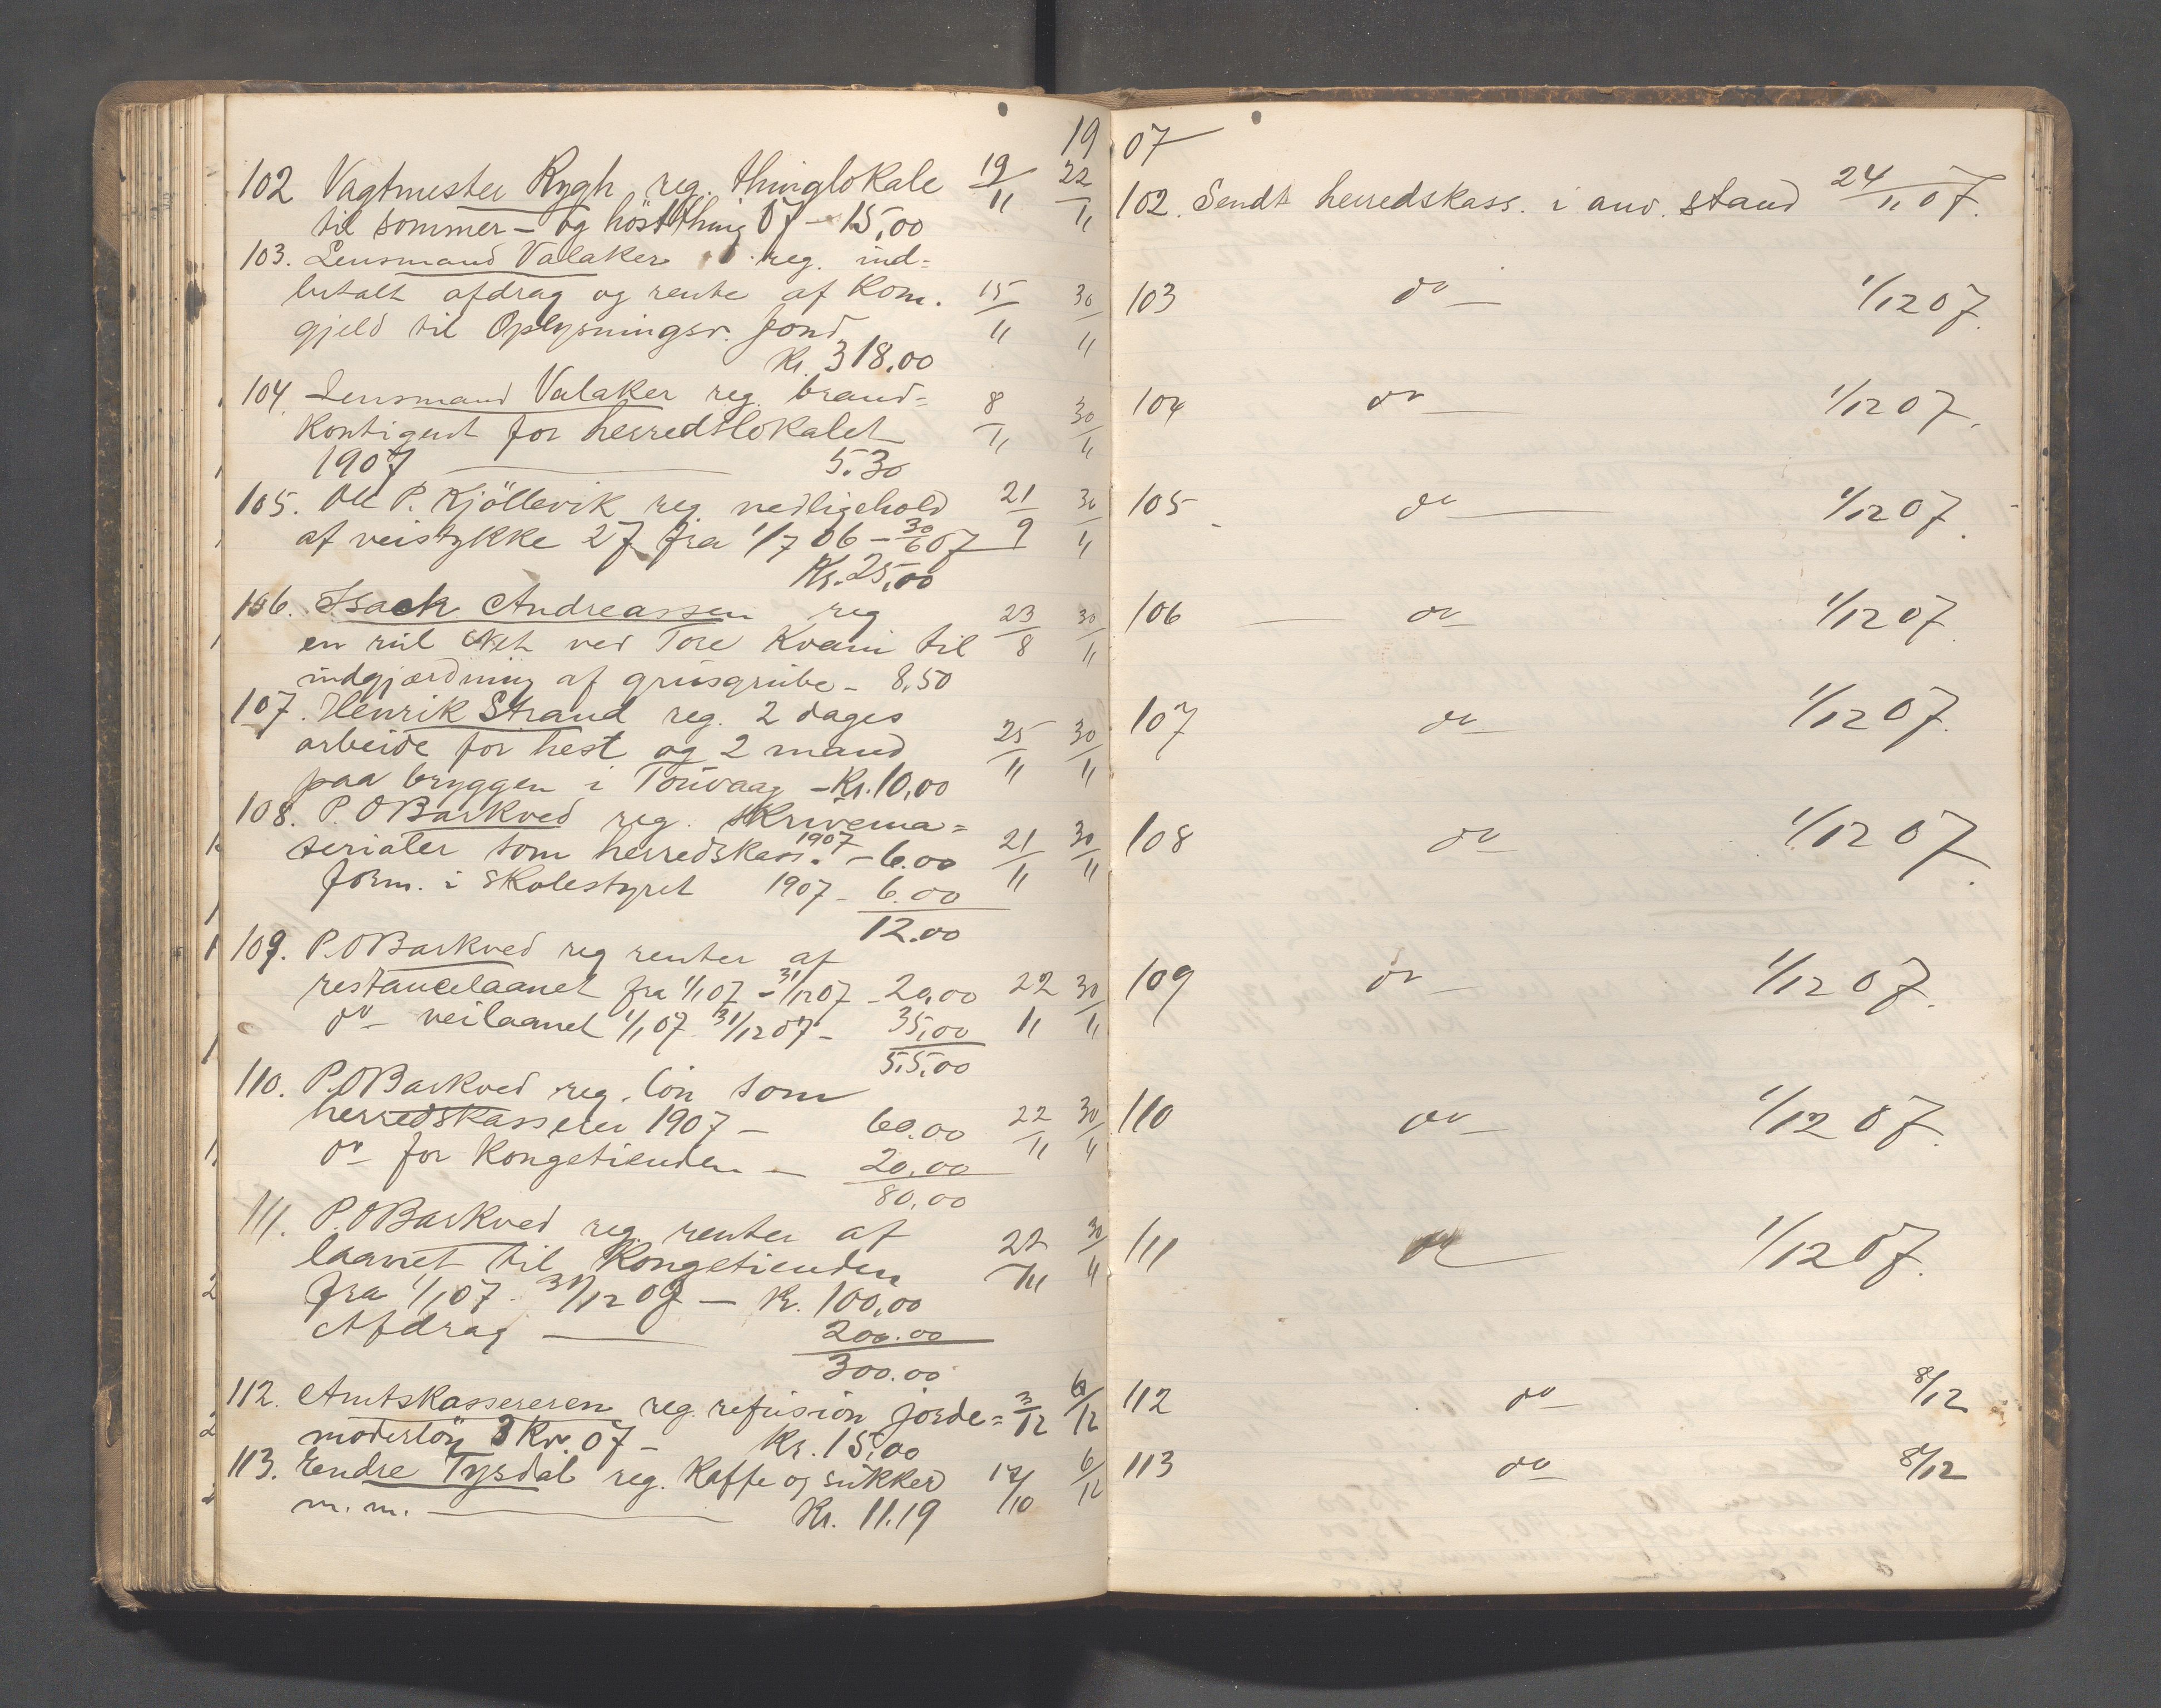 19
102 Vagtmester Rygh reg. thinglokale 19/11 22/11
til sommer- og høstthing 07 - 15,00
103. Lensmand Valaker reg. ind=
betalt afdrag og rente af Kom. 15/11 30/11
gjeld til Oplysningsv. fond
Kr. 318,00
104. Lensmand Valaker reg. brand= 8/11 30/11
Kontigent for herredslokalet
1907 — 5.30
105. Ole P. Kjöllevik reg vedligehold 21/9 30/11
af veistykke 27 fra 1/7 06 - 30/6 07
Kr. 25,00
106. Isack Andreassen reg 23/8 30/11
en ved Tore Kvam til
indgjærdning af grusgrube - 8.50
107. Henrik Strand reg. 2 dages
arbeide for hest og 2 mand 25/11 30/11
paa bryggen i Torvaag - Kr. 10,00
108. P. O Barkved reg. skrivema=
terialer som herredskass. 1907 - 6.00 21/11 30/11
form. i skolestyret 1907 - 6.00
12.00
109. P. O Barkved reg renter af
restancelaanet fra 1/1 07 - 31/12 07 - 20,00 22/11 30/11
do - veilaanet 1/1 07 - 31/12 07 - 35,00
55,00
110. P. O Barkved reg. lön som
herredskasserer 1907 - 60.00 22/11 30/11
do - for Kongetienden — 20,00
80,00
111. P. O Barkved reg. renter af
laanet til Kongetienden 22/11 30/11
fra 1/1 07 - 31/12 07 — Kr. 100,00
Afdrag — 200.00
300.00
112. Amtskassereren reg. refusion jorde= 3/12 6/12
moderlön 3 Kv. 07 - Kr. 15,00
113. Endre Tysdal reg. Kaffe og sukker 17/10 6/12
m. m. — Kr. 11.19
07
102. Sendt herredskass. i anv. stand 24/11 07.
103 do — 1/12 07.
104 do — 1/12 07.
105 do — 1/12 07.
106 — do — 1/12 07.
107 do — 1/12 07.
108 do — 1/12 07.
109 do — 1/12 07.
110 do — 1/12 07.
111 do — 1/12 07.
112 do — 8/12
113 do — 8/12